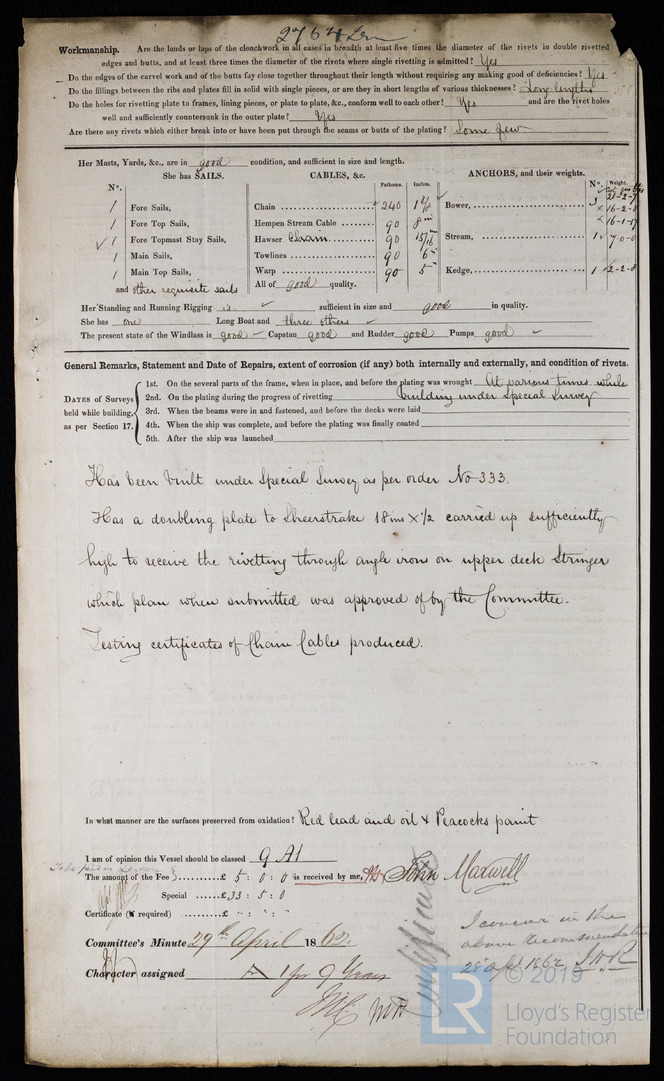 2764 Irn
Workmanship. Are the lands or laps of the clenchwork in all cases in breadth at least five times the diameter of the rivets in double rivetted
edges and butts, and at least three times the diameter of the rivets where single rivetting is admitted? Yes
Do the edges of the carvel work and of the butts fay close together throughout their length without requiring any making good of deficiencies? Yes
Do the fillings between the ribs and plates fill in solid with single pieces, or are they in short lengths of various thicknesses? Long lengths
Do the holes for rivetting plate to frames, lining pieces, or plate to plate, &c., conform well to each other? Yes and are the rivet holes
well and sufficiently countersunk in the outer plate? Yes
Are there any rivets which either break into or have been put through the seams or butts of the plating? Some few
Her Masts, Yards, &c., are in good condition, and sufficient in size and length.
She has SAILS. CABLES, &c. ANCHORS, and their weights.
No. Fathoms. Inches. No. Weight.
1 Fore Sails, Chain 240 Bower, 3
1 Fore Top Sails, Hempen Stream Cable 90 8 16-2-8
1 Fore Topmast Stay Sails, Hawser Chain 90 15/16 16-1-17
1 Main Sails, Towlines 90 6 Stream, 1 7-0-0
1 Main Top Sails, Warp 90 5 Kedge, 1
and other requisite sails All of good quality.
Her Standing and Running Rigging is sufficient in size and good in quality.
She has one Long Boat and three others
The present state of the Windlass is good Capstan good and Rudder good Pumps good
General Remarks, Statement and Date of Repairs, extent of corrosion (if any) both internally and externally, and condition of rivets.
DATES of Surveys held while building, as per Section 17.
1st. On the several parts of the frame, when in place, and before the plating was wrought At various times while
2nd. On the plating during the progress of rivetting building under Special Survey
3rd. When the beams were in and fastened, and before the decks were laid
4th. When the ship was complete, and before the plating was finally coated
5th. After the ship was launched
Has been built under Special Survey as per order No 333.
Has a doubling plate to Sheerstrake 18 ins x 1/2 carried up sufficiently
high to receive the rivetting through angle irons on upper deck Stringer
which plan when submitted was approved of by the Committee.
Testing certificates of Chain Cables produced.
In what manner are the surfaces preserved from oxidation? Red lead and oil & Peacocks paint
I am of opinion this Vessel should be classed 9 A1
The amount of the Fee £ 5 : 0 : 0 is received by me, John Maxwell
Special £33 : 5 : 0
Certificate (if required) £ " : " : "
I concur in the
above Recommendation
28 Apl 1862
Committee's Minute 29th April 1862.
Character assigned A 1 for 9 Years
© 2019
LR
Lloyd's Register
Foundation